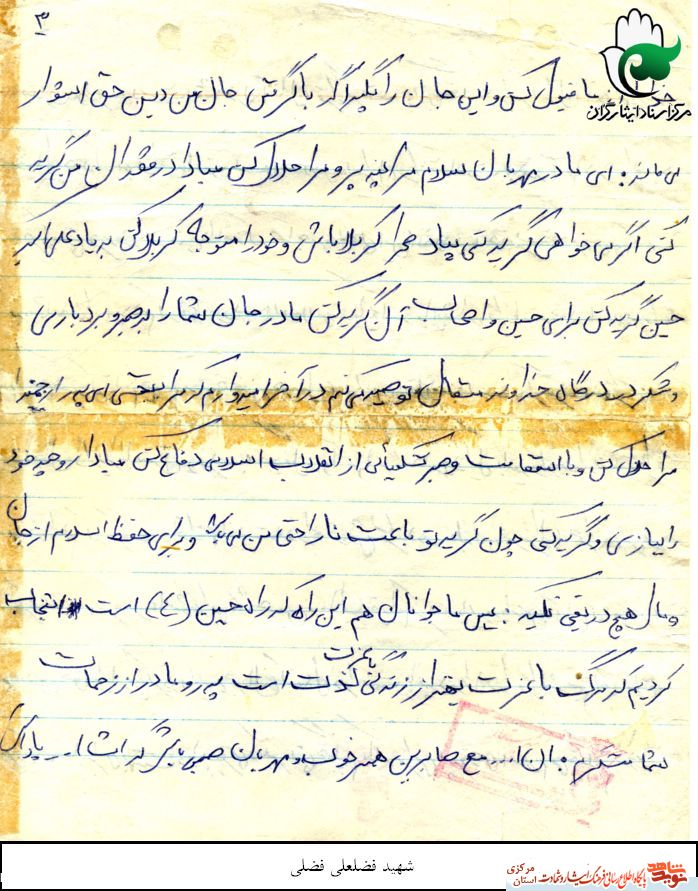 ۳
مرکز اسناد ایثارگران
ما قبول کن و این جان را بگیر اگر با گرفتن جان من دین حق استوار
می ماند. ای مادر مهربان سلام مرا بپذیر و مرا حلال کن مبادا در فقدان من گریه
کنی اگر می خواهی گریه کنی بیاد صحرا کربلا باش و خود را متوجه کربلا کن به یاد علی اکبر
حسین گریه کن برای حسین و اصحاب آن گریه کن مادر جان شما را به صبر و بردباری
و شکر در درگاه خداوند متعال توصیه می کنم در آخر امیدوارم که مرا ببخشی ای پدر ارجمند
مرا حلال کن و با استقامت و صبر شکیبائی از انقلاب اسلامی دفاع کن مبادا روحیه خود
را ببازی و گریه کنی چون گریه تو باعث ناراحتی من می باشد و برای حفظ اسلام از جان
و مال هیچ دریغی نکنید. پس ما جوانان هم این راه که راه حسین (ع) است انتخاب
کردیم که مرگ با عزت بهتر از زندگی با ذلت است پدر و مادر از زحمات
شما متشکرم. ان ا... مع صابرین همسر خوب و مهربان صبور باش گر انشا ا... پاداش
شهید فضلعلی فضلی
نوید شاهد
پایگاه اطلاع رسانی فرهنگ ایثار و شهادت استان مرکزی